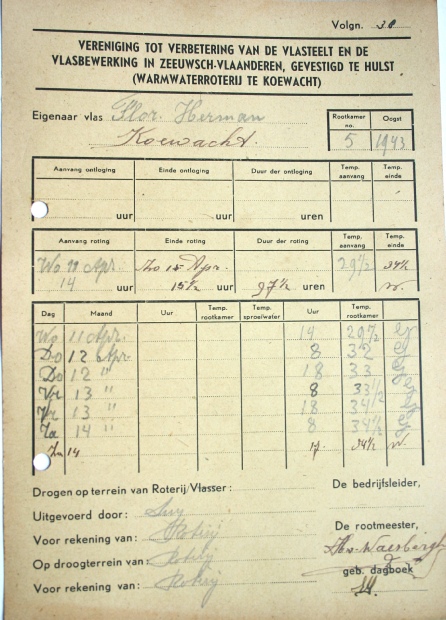 Volgn. 30
VERENIGING TOT VERBETERING VAN DE VLASTEELT EN DE
VLASBEWERKING IN ZEEUWSCH-VLAANDEREN, GEVESTIGD TE HULST
(WARMWATERROTERIJ TE KOEWACHT)
Eigenaar vlas Flor. Herman
Koewacht.
Rootkamer no. Oogst
5 1943
Aanvang ontloging Einde ontloging Duur der ontloging Temp. aanvang Temp. einde
uur uur uren
Aanvang roting Einde roting Duur der roting Temp. aanvang Temp. einde
Wo 11 Apr. Zo 15 Apr. 29½ 34½
14 uur 15½ uur 97½ uren
Dag Maand Uur Temp. rootkamer Temp. sproeiwater Uur Temp. rootkamer
Wo 11 Apr. 14 29½
Do 12 Apr. 8 32
Do 12 " 18 33
Vr 13 " 8 33½
Vr 13 " 18 34½
Za 14 " 8 34½
Za 14 17. 34½
Drogen op terrein van Roterij/Vlasser:
Uitgevoerd door:
Voor rekening van: Roterij
Op droogterrein van: Roterij
Voor rekening van: Roterij
De bedrijfsleider,
De rootmeester,
geb. dagboek